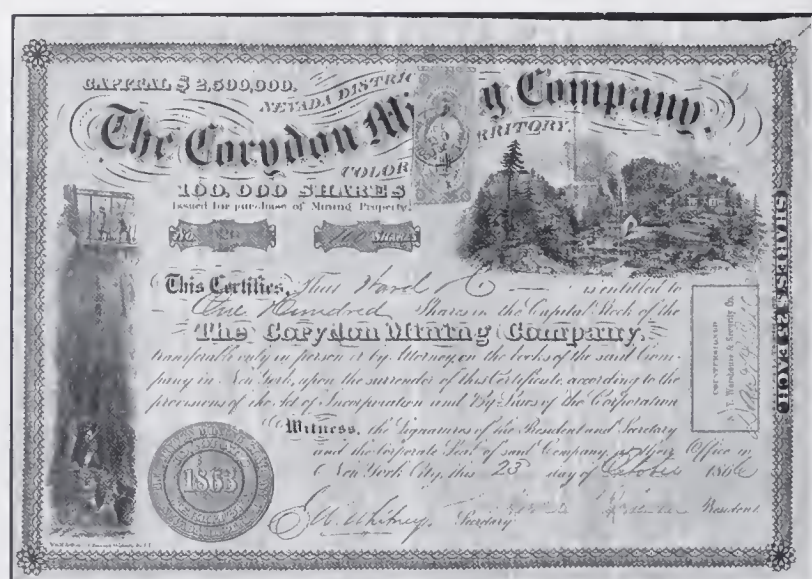 CAPITAL $2,500,000.
NEVADA DISTRIC
The Corydon Mi g Company,
COLOR RRITORY.
100,000 SHARES
Issued for purchase of Mining Property.
No. Shares
This Certifies, That Ward is entitled to
One Hundred Shares in the Capital Stock of the
The Corydon Mining Company,
transferable only in person or by Attorney, on the books of the said Com-
pany in New York, upon the surrender of this Certificate according to the
provisions of the Act of Incorporation and By-Laws of the Corporation
Witness, the Signatures of the President and Secretary
and the Corporate Seal of said Company, at their Office in
New York City, this 23 day of October 1866
Secretary President
1863
SHARES $25 EACH
COUNTERSIGNED
N.Y. Warehouse & Security Co.